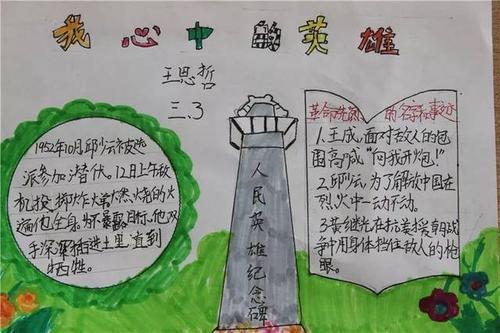 我心中的英雄
王思哲
三.3
1952年10月邱少云被选
派参加潜伏。12月上午敌
机投掷炸弹燃烧的火
遍他全身。为不暴露目标,他双
手深深插进土里,直到
牺牲。
人民英雄纪念碑
革命先烈的名字和事迹
1.王成,面对敌人的包
围高喊“向我开炮!”
2.邱少云,为了解放中国在
烈火中一动不动。
3.黄继光在抗美援朝战
争中用身体挡住敌人的炮
眼。